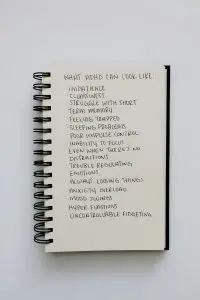 WHAT ADHD CAN LOOK LIKE
IMPATIENCE
CLUMSINESS
STRUGGLE WITH SHORT
TERM MEMORY
FEELING TRAPPED
SLEEPING PROBLEMS
POOR IMPULSE CONTROL
INABILITY TO FOCUS
EVEN WHEN THERE'S NO
DISTRACTIONS
TROUBLE REGULATING
EMOTIONS
ALWAYS LOSING THINGS
ANXIETY OVERLOAD
MOOD SWINGS
HYPER FIXATIONS
UNCONTROLLABLE FIDGETING